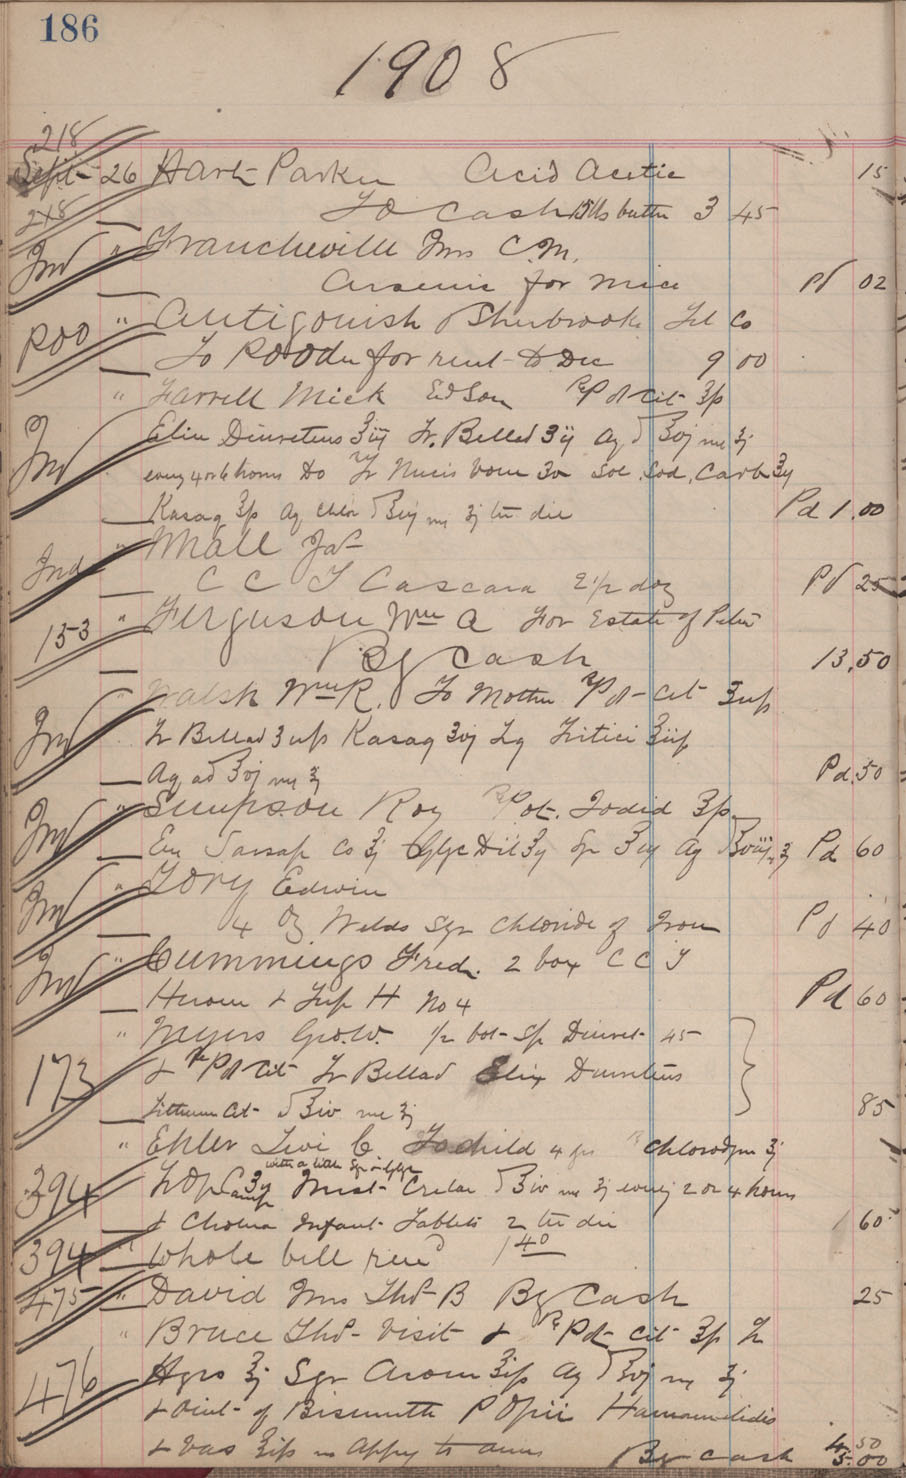 186
1908
218
Sept 26 Hart Parker Acid Acetic 15
218 To Cash 15 lbs butter 3 45
Ind " Francheville Mrs C.M.
Arsenic for mice Pd 02
P00 " Antigonish & Sherbrooke Tel Co
To for rent to Dec 9 00
" Farrell Mick Ed Son R Pot Cit ʒp
Ind Elix Diureticus ʒiij Tr. Bellad ʒij aq ad ℥vj m ʒj
every 4 or 6 hours Do R Tr Nucis Vom ʒv Sod. Carb ʒij
Kasag ℥p aq Chlor ad ℥vj m ʒj ter die Pd 1.00
Ind " Whall Jas
C C T Cascara 2½ doz Pd 25
153 " Ferguson Wm A For Estate of Peter
By Cash 13.50
" Walsh Wm R. To Mother R Pot Cit
Ind Tr Bellad Kasag ʒvj Lq Tritici
Aq ad ℥vj m ʒj Pd .50
Ind " Simpson Roy R Pot. Iodid ʒp
Sarsap Co Glyc aq Pd 60
Ind " Tory Edwin
4 oz Welds Syr Chloride of Iron Pd 40
Ind " Cummings Fred. 2 box C C T
& H No 4 Pd 60
" Meyers Geo. W. ½ bot Sp Diuret 45
173 & R Pot Cit Tr Bellad Elix Diureticus
Lithium Cit ad ℥iv m ʒj 85
" Ehler Levi C To child 4 grs R Chlorodyne ʒj
with a little Syr or Glyc
394 Tr Op Camp Mist Cretae ad ℥iv m ʒj every 2 or 4 hours
& Cholera Infant Tablets 2 ter die 60
394 " Whole bill rend 1 40
475 " David Mrs Thos B By Cash 25
" Bruce Thos Visit & R Pot Cit ʒp Tr
476 Hyos ʒj Syr Arom aq ad ℥vj m ʒj
& Oint of Bismuth P Opii Hamamelidis
& Vas m Apply to By Cash 4.50
5.00